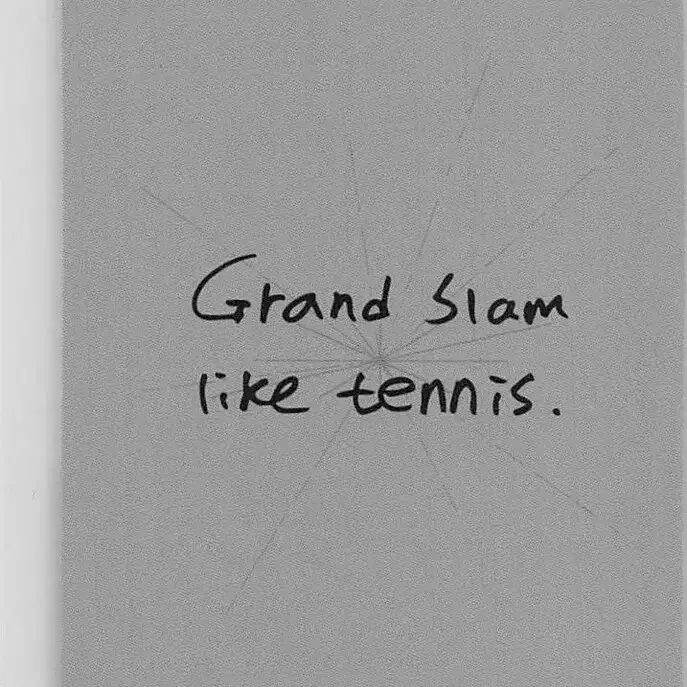 Grand Slam
like tennis.